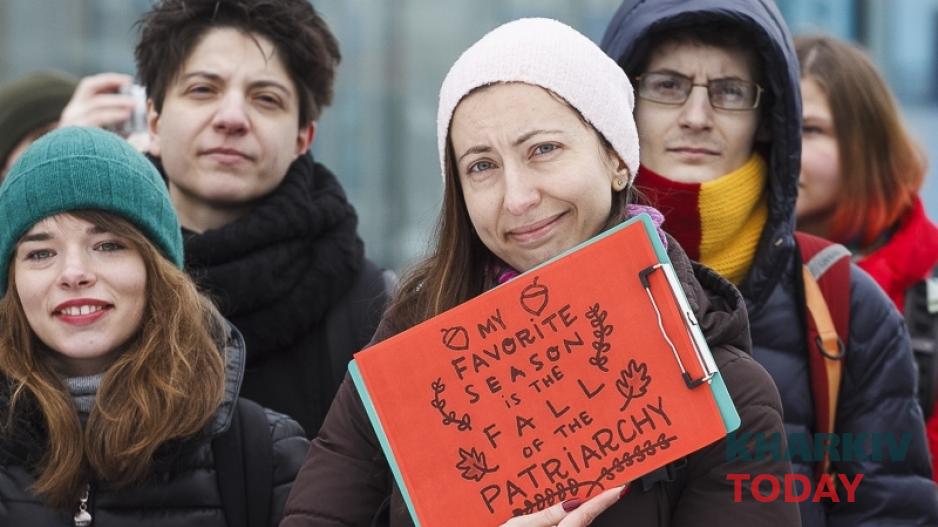 MY
FAVORITE
SEASON
IS THE
FALL
OF THE
PATRIARCHY
KHARKIV
TODAY